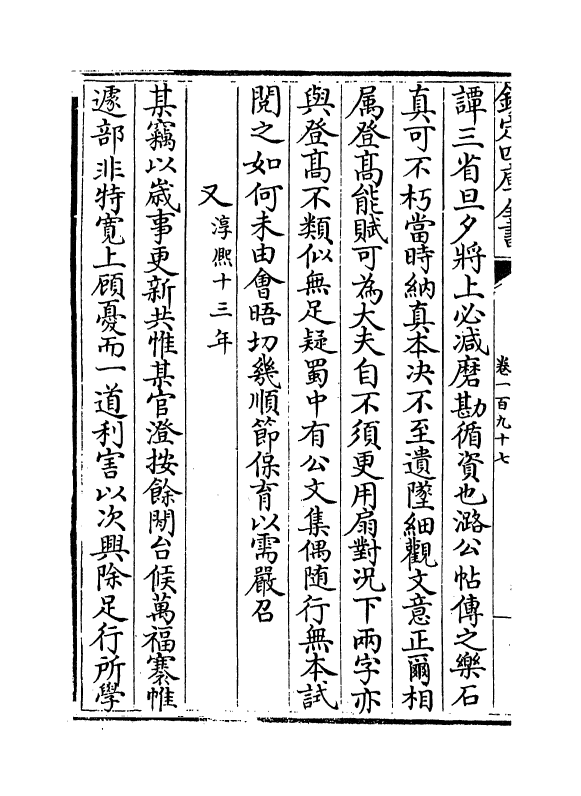 欽定四庫全書
卷一百九十七
譚三省旦夕將上必减磨勘循資也潞公帖傳之樂石
真可不朽當時納真本决不至遺墜細觀文意正爾相
属登髙能賦可為大夫自不須更用扇對况下兩字亦
與登髙不類似無足疑蜀中有公文集偶随行無本試
閲之如何未由會晤切幾順節保育以需嚴召
又淳熙十三年
某竊以歳事更新共惟某官澄按餘閒台候萬福褰帷
遽部非特寛上顧憂而一道利害以次興除足行所學